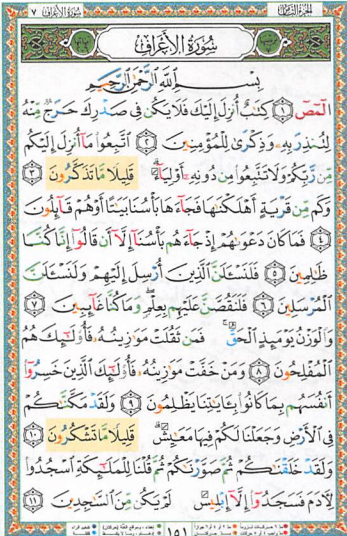 سُورَةُ الأَعْرَافِ ٧ الجُزْءُ الثَّامِنُ
سُورَةُ الأَعْرَافِ
بِسْمِ اللَّهِ الرَّحْمَٰنِ الرَّحِيمِ
الٓمٓصٓ ١ كِتَٰبٌ أُنزِلَ إِلَيْكَ فَلَا يَكُن فِي صَدْرِكَ حَرَجٌ مِّنْهُ
لِتُنذِرَ بِهِۦ وَذِكْرَىٰ لِلْمُؤْمِنِينَ ٢ ٱتَّبِعُوا۟ مَآ أُنزِلَ إِلَيْكُم
مِّن رَّبِّكُمْ وَلَا تَتَّبِعُوا۟ مِن دُونِهِۦٓ أَوْلِيَآءَ ۗ قَلِيلًا مَّا تَذَكَّرُونَ ٣
وَكَم مِّن قَرْيَةٍ أَهْلَكْنَٰهَا فَجَآءَهَا بَأْسُنَا بَيَٰتًا أَوْ هُمْ قَآئِلُونَ
٤ فَمَا كَانَ دَعْوَىٰهُمْ إِذْ جَآءَهُم بَأْسُنَآ إِلَّآ أَن قَالُوٓا۟ إِنَّا كُنَّا
ظَٰلِمِينَ ٥ فَلَنَسْـَٔلَنَّ ٱلَّذِينَ أُرْسِلَ إِلَيْهِمْ وَلَنَسْـَٔلَنَّ
ٱلْمُرْسَلِينَ ٦ فَلَنَقُصَّنَّ عَلَيْهِم بِعِلْمٍ ۖ وَمَا كُنَّا غَآئِبِينَ ٧
وَٱلْوَزْنُ يَوْمَئِذٍ ٱلْحَقُّ ۚ فَمَن ثَقُلَتْ مَوَٰزِينُهُۥ فَأُو۟لَٰٓئِكَ هُمُ
ٱلْمُفْلِحُونَ ٨ وَمَنْ خَفَّتْ مَوَٰزِينُهُۥ فَأُو۟لَٰٓئِكَ ٱلَّذِينَ خَسِرُوٓا۟
أَنفُسَهُم بِمَا كَانُوا۟ بِـَٔايَٰتِنَا يَظْلِمُونَ ٩ وَلَقَدْ مَكَّنَّٰكُمْ
فِي ٱلْأَرْضِ وَجَعَلْنَا لَكُمْ فِيهَا مَعَٰيِشَ ۗ قَلِيلًا مَّا تَشْكُرُونَ ١٠
وَلَقَدْ خَلَقْنَٰكُمْ ثُمَّ صَوَّرْنَٰكُمْ ثُمَّ قُلْنَا لِلْمَلَٰٓئِكَةِ ٱسْجُدُوا۟
لِـَٔادَمَ فَسَجَدُوٓا۟ إِلَّآ إِبْلِيسَ لَمْ يَكُن مِّنَ ٱلسَّٰجِدِينَ ١١
١٥١